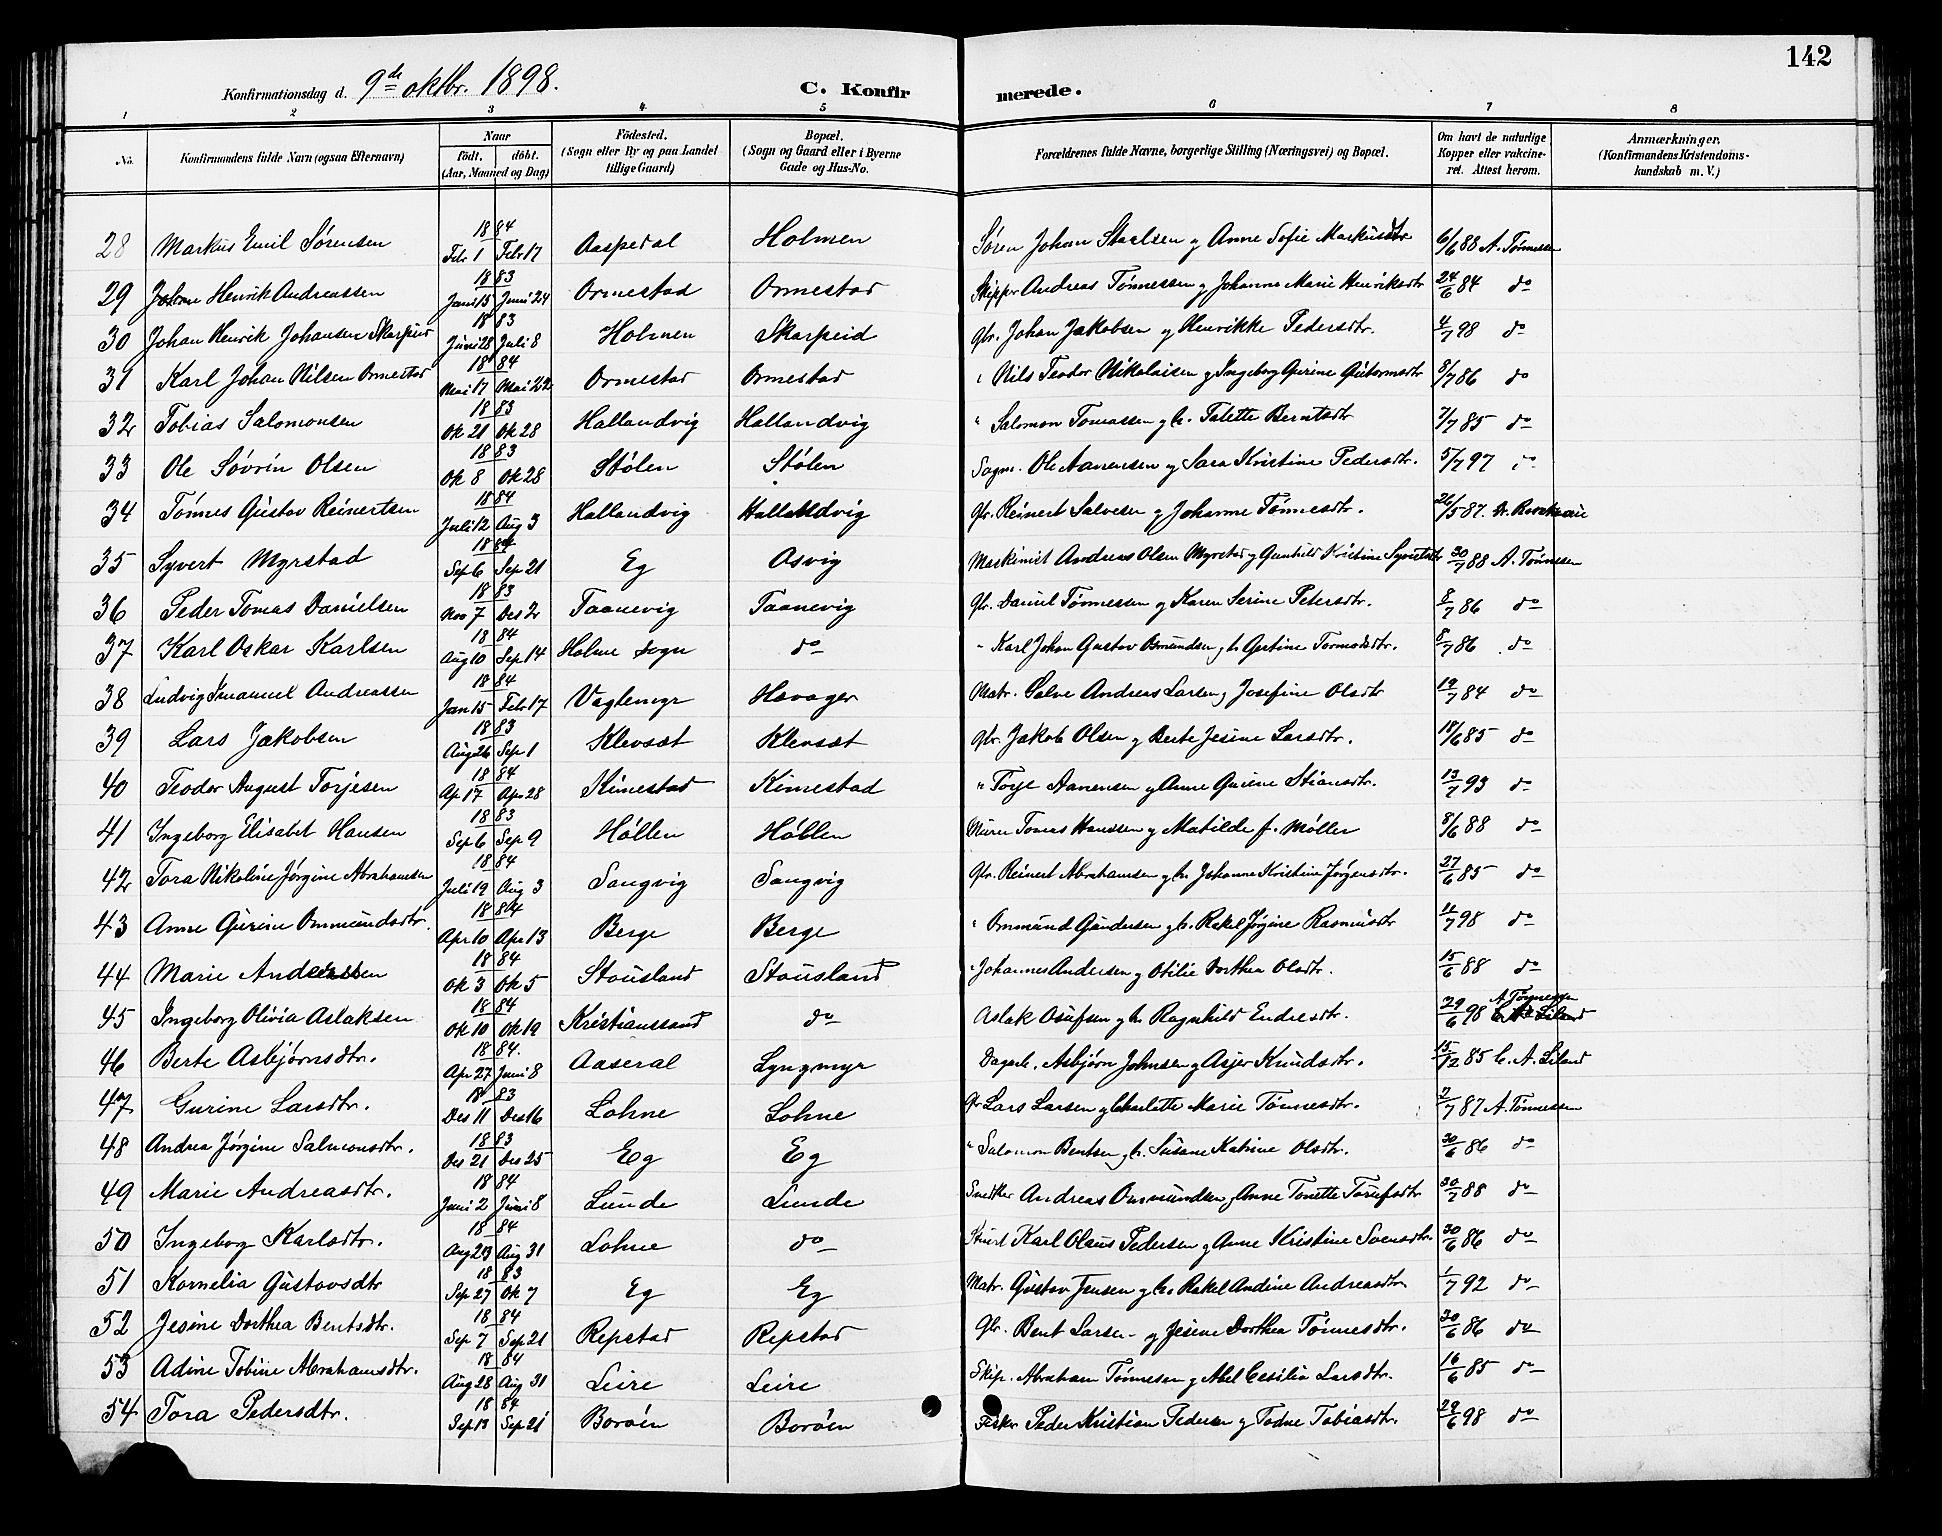 142
Konfirmationsdag d. 9de oktbr. 1898. C. Konfirmerede.
1 2 3 4 5 6 7 8
No. Konfirmandens fulde Navn (ogsaa Efternavn) Naar födt, döbt. (Aar, Maaned og Dag) Födested. (Sogn eller By og paa Landet tillige Gaard) Bopæl. (Sogn og Gaard eller i Byerne Gade og Hus-No. Forældrenes fulde Navne, borgerlige Stilling (Næringsvei) og Bopæl. Om havt de naturlige Kopper eller vakcineret. Attest herom. Anmærkninger. (Konfirmandens Kristendomskundskab m. V.)
28 Markus Emil Sørensen 1884 Febr 1 Febr 17 Aaspedal Holmen Søren Johan Staalsen g Anne Sofie Markusdtr 6/6 88 A. Tønnessen
29 Johan Henrik Andreassen 1883 Juni 15 Juni 24 Ormestad Ormestad Skipper Andreas Tønnessen g Johanne Marie Henriksdtr 24/6 84 do
30 Johan Henrik Johansen Skarpeid 1883 Juni 28 Juli 8 Holmen Skarpeid Gbr. Johan Jakobsen g Henrikke Pedersdtr. 4/7 98 do
31 Karl Johan Nilsen Ormestad 1884 Mai 17 Mai 22 Ormestad Ormestad " Nils Teodor Nikolaisen g Ingeborg Gurine Gutormsdtr 8/7 86 do
32 Tobias Salomonsen 1883 Ok 21 Ok 28 Hallandvig Hallandvig " Salomon Tomassen g h. Talette Berntsdtr 7/7 85 do
33 Ole Søvrin Olsen 1883 Ok 8 Ok 28 Stølen Stølen Sagm. Ole Aanensen g Sara Kristine Pedersdtr. 5/7 97 do
34 Tønnes Gustav Reinertsen 1884 Juli 12 Aug 3 Hallandvig Hallandvig Gbr. Reinert Salvesen g Johanne Tønnesdtr. 26/5 87.
35 Syvert Myrstad 1884 Sep 6 Sep 21 Eg Asvig Maskinist Andreas Olsen Myrstad g Gunhild Kristine Syvertsdtr 30/7 88 A. Tønnessen
36 Peder Tomas Danielsen 1883 Nov 7 Des 2 Taanevig Taanevig Gbr. Daniel Tønnessen g Karen Serine Petersdtr. 8/7 86 do
37 Karl Oskar Karlsen 1884 Aug 10 Sep 14 Holme Sogn do " Karl Johan Gustav Osmundsen g h Gustine Tormodsdtr. 8/7 86 do
38 Ludvig Imanuel Andreassen 1884 Jan 15 Febr 17 Vagtemyr Havager Matr. Salve Andreas Larsen g Josefine Olsdtr 19/7 84 do
39 Lars Jakobsen 1883 Aug 26 Sep 1 Klevsæt Klevsæt Gbr. Jakob Olsen g Berte Jesine Larsdtr. 18/6 85 do
40 Teodor August Torjesen 1884 Ap 17 Apr 28 Kimestad Kimestad " Torje Aanensen g Anne Gurine Stiansdtr. 13/7 93 do
41 Ingeborg Elisabet Hansen 1883 Sep 6 Sep 9 Høllen Høllen Murer Tomas Hanssen g Matilde f. Møller 8/6 88 do
42 Tora Nikoline Jørgine Abrahamsen 1884 Juli 19 Aug 3 Langvig Langvig Gbr. Reinert Abrahamsen g h. Johanne Kristine Jørgensdtr. 27/6 85 do
43 Anne Gurine Ommundsdtr. 1884 Apr 10 Apr 13 Berge Berge " Ommund Gundersen g h. Rakel Jørgine Rasmusdtr 4/7 98 do
44 Marie Andersen 1884 Ok 3 Ok 5 Stousland Stousland Johannes Andersen g Otilie Dorthea Olsdtr. 15/6 88 do
45 Ingeborg Olivia Aslaksen 1884 Ok 10 Ok 19 Kristianssand do Aslak Osufsen g h. Ragnhild Endresdtr. 29/6 98 A. Tønnessen
46 Berte Asbjørnsdtr. 1884. Apr 27 Juni 8 Aaseral Lyngmyr Dagarb. Asbjørn Johnsen g Asjer Knudsdtr. 15/12 85 C. A. Liland
47 Gurine Larsdtr. 1883 Des 11 Des 16 Lohne Lohne Gbr Lars Larsen g Charlotte Marie Tønnesdtr. 2/7 87 A. Tønnessen
48 Andrea Jørgine Salmonsdtr. 1883 Des 21 Des 25 Eg Eg " Salomon Bentsen g h. Susane Katrine Olsdtr. 30/6 86 do
49 Marie Andreasdtr. 1884 Juni 2 Juni 8 Lunde Lunde Snedker Andreas Ommundsen g Anne Tonette Torufsdtr 30/7 88 do
50 Ingebog Karlsdtr. 1884 Aug 23 Aug 31 Lohne do Karl Olaus Pedersen g Anne Kristine Svensdtr. 30/6 86 do
51 Kornelia Gustavsdtr 1883 Sep 27 Ok 7 Eg Eg Matr. Gustav Jensen g h. Rakel Andine Andreasdtr. 1/7 92 do
52 Jesine Dorthea Bentsdtr. 1884 Sep 7 Sep 21 Repstad Repstad Gbr. Bent Larsen g Jesine Dorthea Tønnesdtr. 30/6 86 do
53 Adine Tobine Abrahamsdtr. 1884 Aug 28 Aug 31 Leire Leire Skip. Abraham Tønnesen g Abel Cesilia Larsdtr. 16/6 85 do
54 Tora Pedersdtr. 1884 Sep 13 Sep 21 Borøen Borøen Fisker Peder Kristian Pedersen g Todne Tobiasdtr. 29/6 98 do